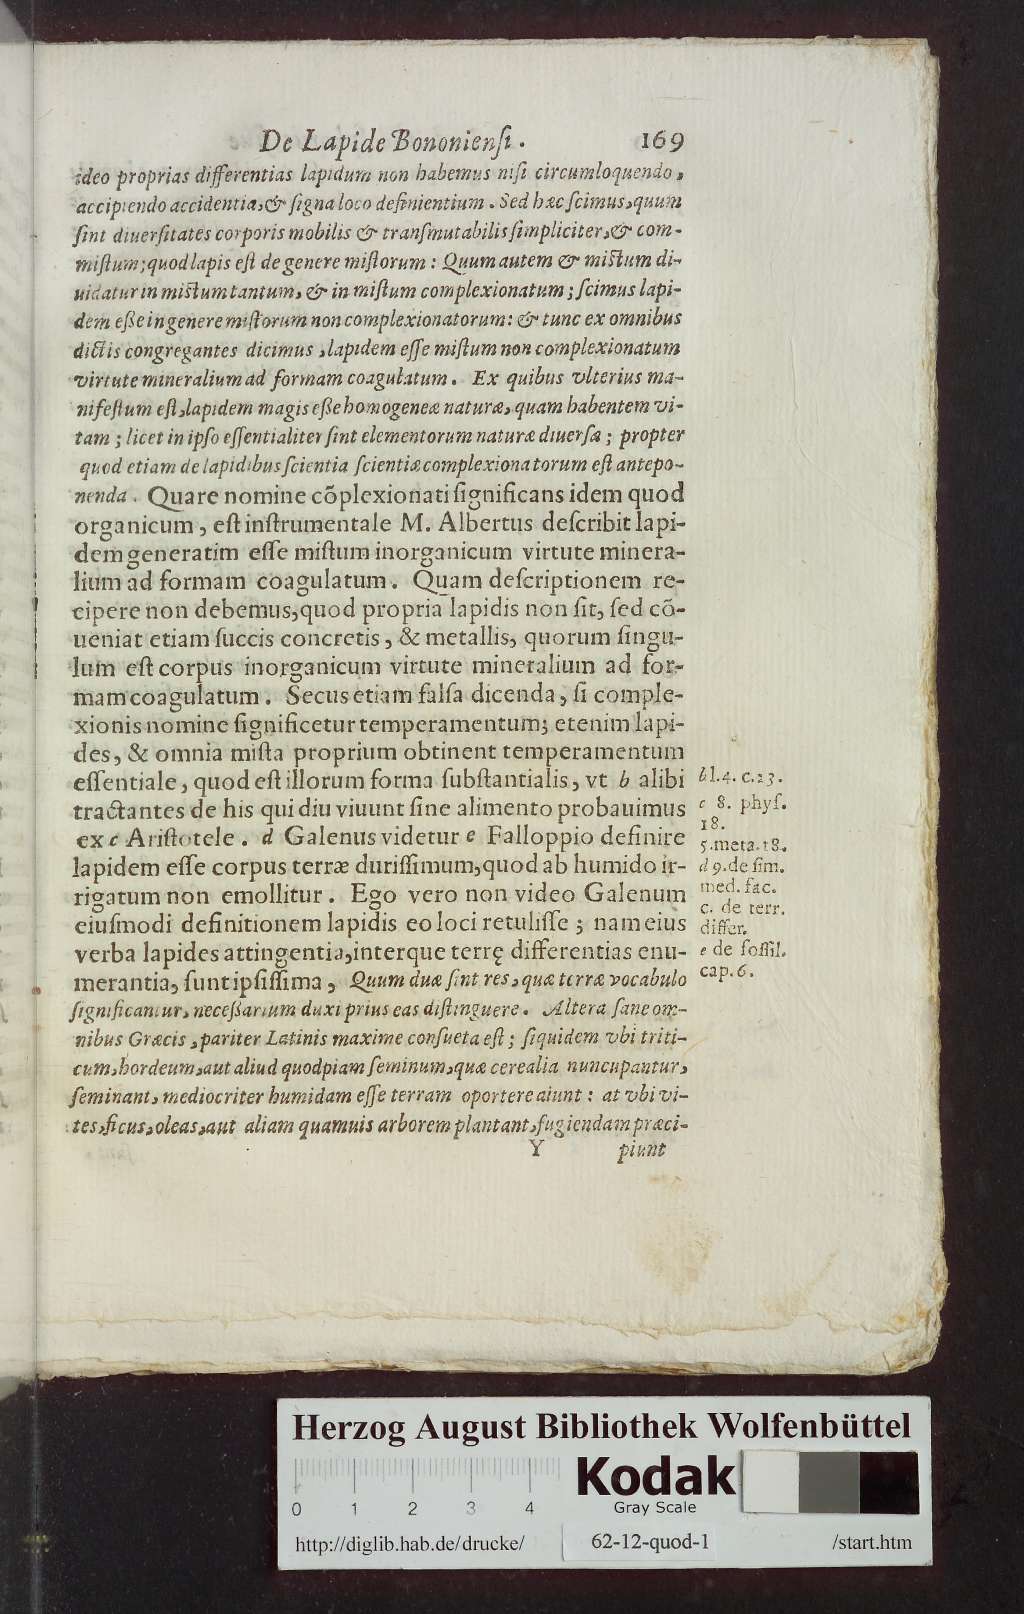 De Lapide Bononienſi. 169
ideo proprias differentias lapidum non habemus niſi circumloquendo,
accipiendo accidentia, & ſigna loco definientium. Sed hæc ſcimus, quum
ſint diuerſitates corporis mobilis & tranſmutabilis ſimpliciter, & com-
miſtum; quod lapis eſt de genere miſtorum: Quum autem & miſtum di-
uidatur in miſtum tantum, & in miſtum complexionatum; ſcimus lapi-
dem eße in genere miſtorum non complexionatorum: & tunc ex omnibus
dictis congregantes dicimus, lapidem eſſe miſtum non complexionatum
virtute mineralium ad formam coagulatum. Ex quibus vlterius ma-
nifeſtum eſt, lapidem magis eße homogeneæ naturæ, quam habentem vi-
tam; licet in ipſo eſſentialiter ſint elementorum naturæ diuerſæ; propter
quod etiam de lapidibus ſcientia ſcientiæ complexionatorum eſt antepo-
nenda. Quare nomine cõplexionati ſignificans idem quod
organicum, eſt inſtrumentale M. Albertus deſcribit lapi-
dem generatim eſſe miſtum inorganicum virtute minera-
lium ad formam coagulatum. Quam deſcriptionem re-
cipere non debemus, quod propria lapidis non ſit, ſed cõ-
ueniat etiam ſuccis concretis, & metallis, quorum ſingu-
lum eſt corpus inorganicum virtute mineralium ad for-
mam coagulatum. Secus etiam falſa dicenda, ſi comple-
xionis nomine ſignificetur temperamentum; etenim lapi-
des, & omnia miſta proprium obtinent temperamentum
eſſentiale, quod eſt illorum forma ſubſtantialis, vt b alibi
tractantes de his qui diu viuunt ſine alimento probauimus
ex c Ariſtotele. d Galenus videtur e Falloppio definire
lapidem eſſe corpus terræ duriſſimum, quod ab humido ir-
rigatum non emollitur. Ego vero non video Galenum
eiuſmodi definitionem lapidis eo loci retuliſſe; nam eius
verba lapides attingentia, interque terrę differentias enu-
merantia, ſunt ipſiſſima, Quum duæ ſint res, quæ terræ vocabulo
ſignificantur, neceßarium duxi prius eas diſtinguere. Altera ſane om-
nibus Græcis, pariter Latinis maxime conſueta eſt; ſiquidem vbi triti-
cum, hordeum, aut aliud quodpiam ſeminum, quæ cerealia nuncupantur,
ſeminant, mediocriter humidam eſſe terram oportere aiunt: at vbi vi-
tes, ficus, oleas, aut aliam quamuis arborem plantant, fugiendam præci-
Y piunt
b l.4. c.23.
c 8. phyſ.
18.
5.meta.18.
d 9.de ſim.
med. fac.
c. de terr.
differ.
e de foſſil.
cap.6.
Herzog August Bibliothek Wolfenbüttel
Kodak
Gray Scale
0 1 2 3 4
http://diglib.hab.de/drucke/ 62-12-quod-1 /start.htm